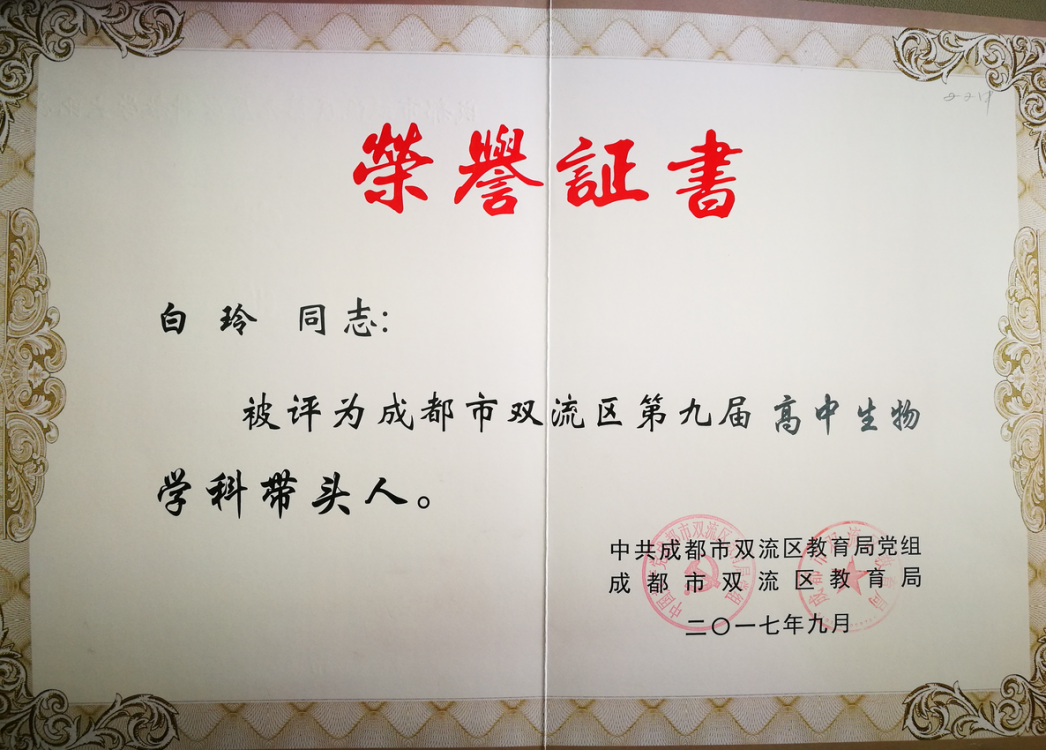 榮譽証書
白玲 同志:
被评为成都市双流区第九届高中生物
学科带头人。
中共成都市双流区教育局党组
成都市双流区教育局
二〇一七年九月